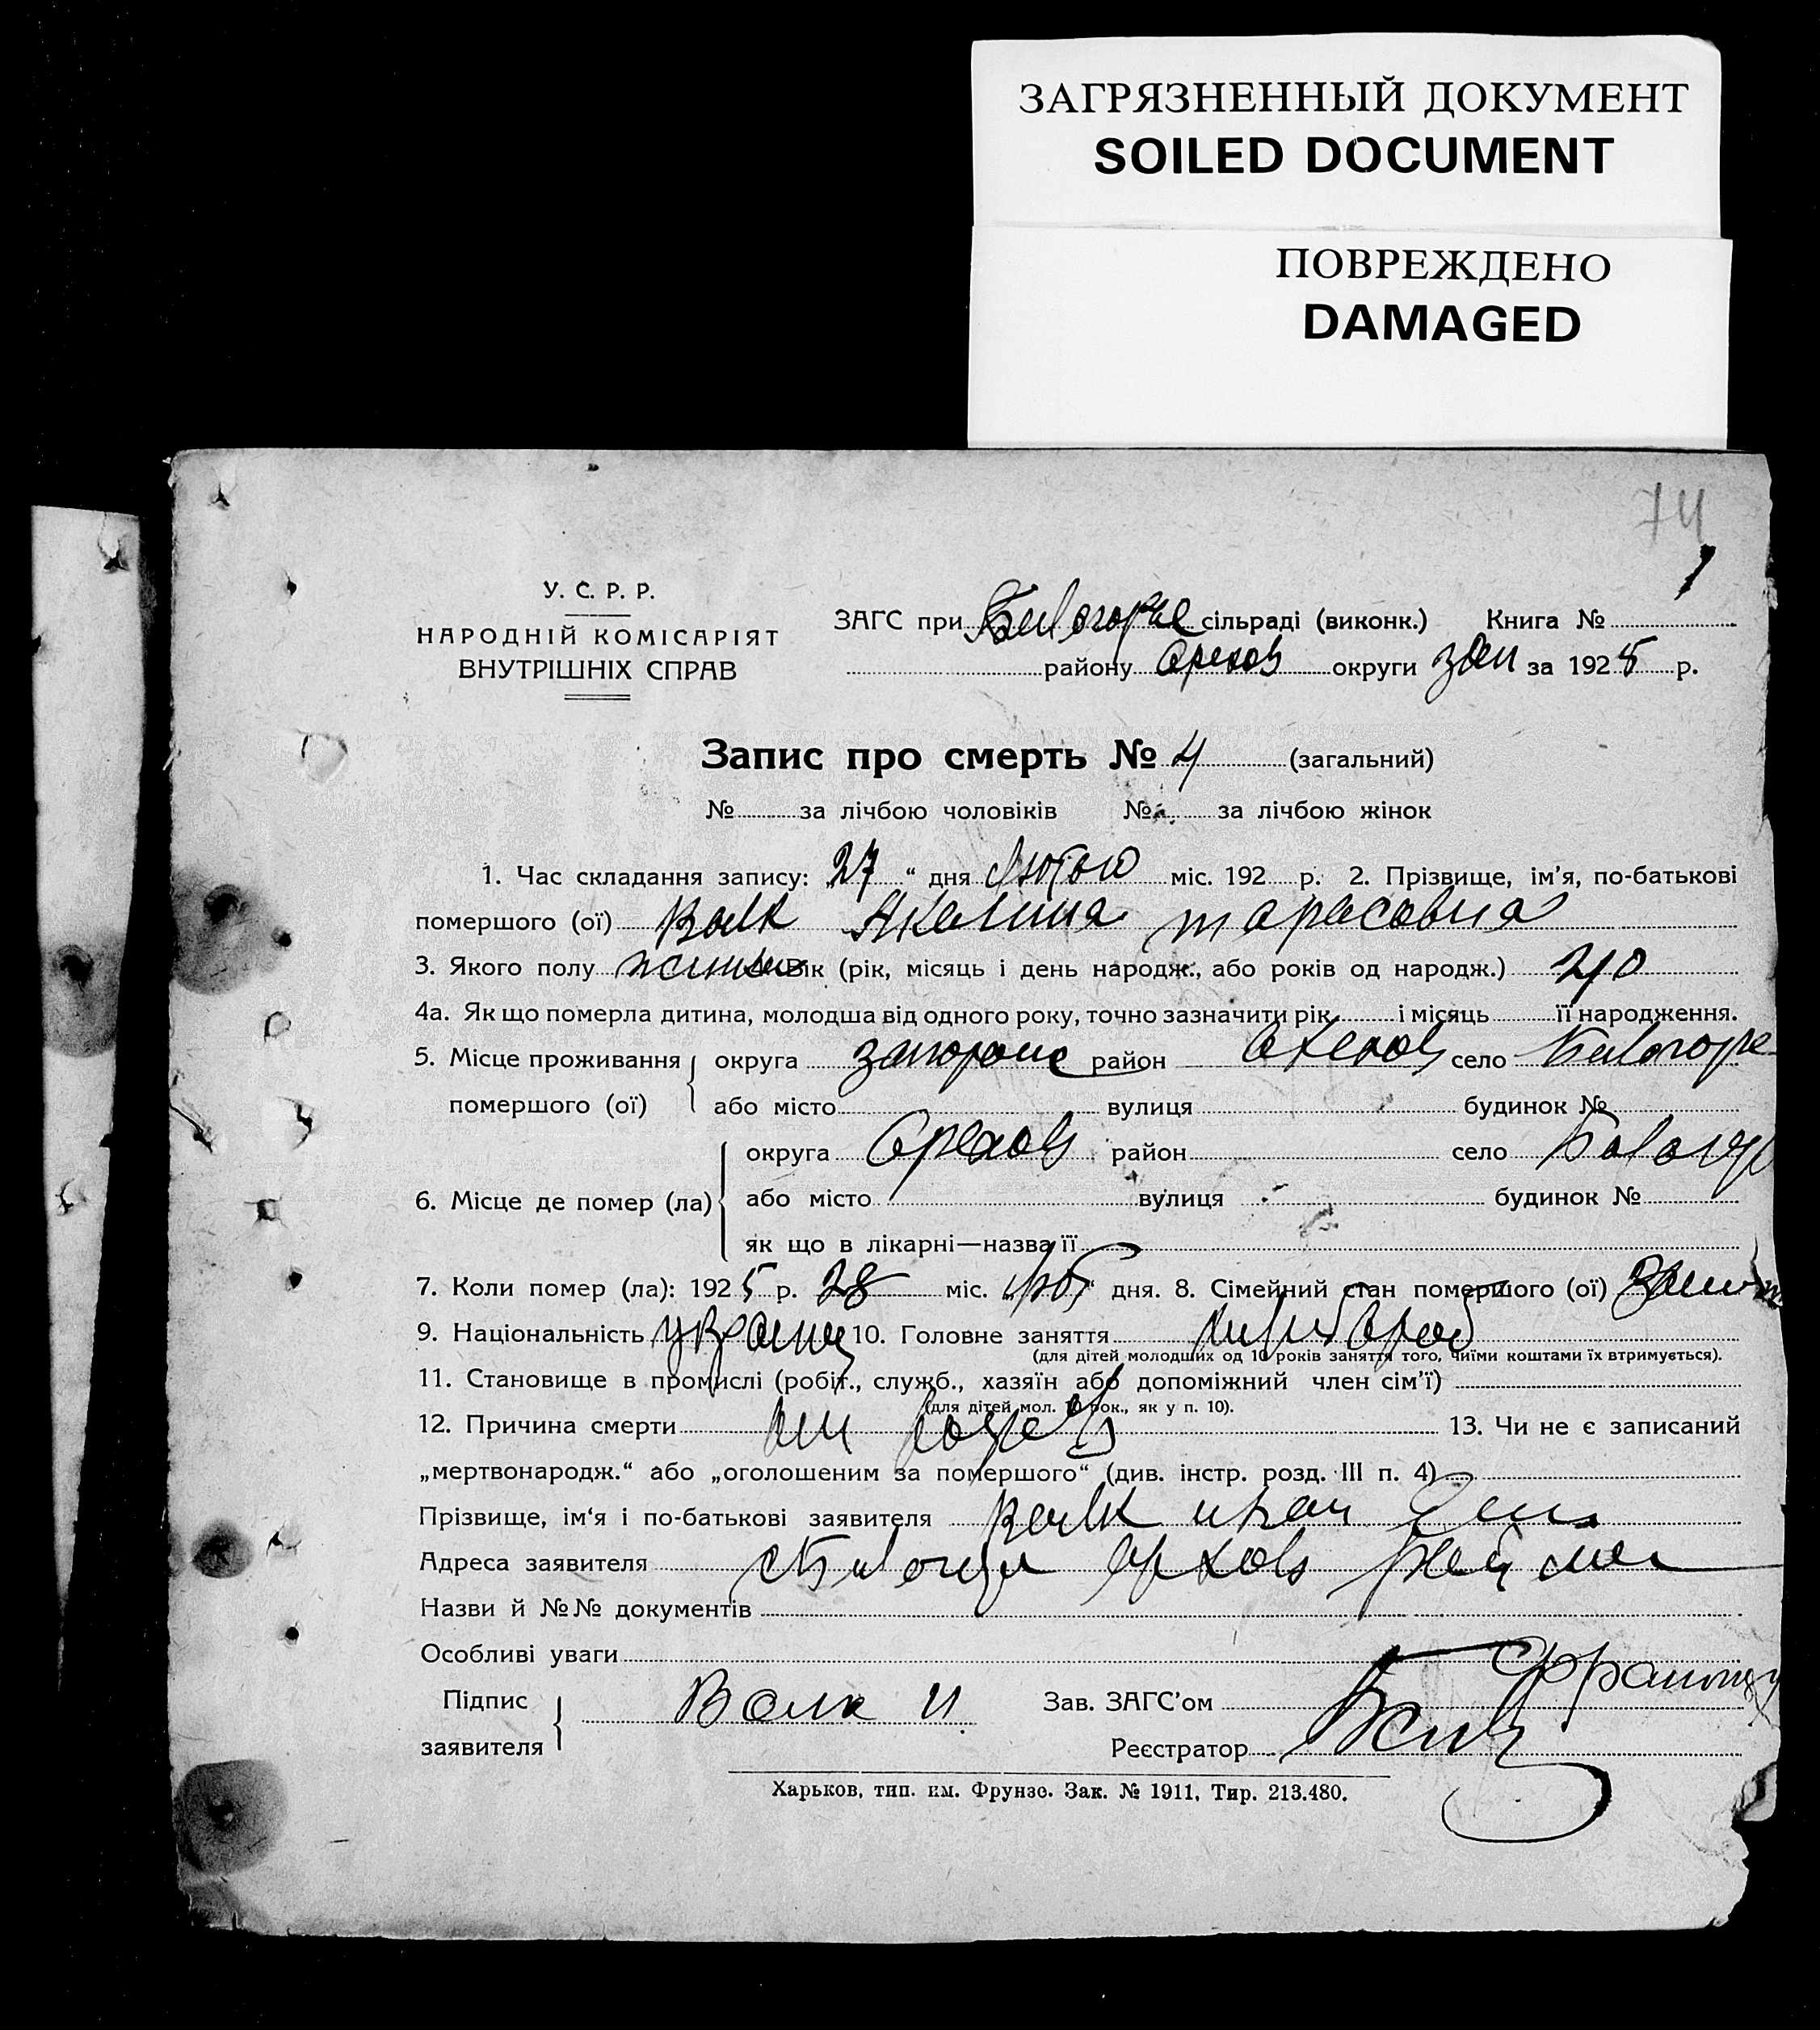 ЗАГРЯЗНЕННЫЙ ДОКУМЕНТ
SOILED DOCUMENT
ПОВРЕЖДЕНО
DAMAGED
74
1
У. С. Р. Р.
НАРОДНІЙ КОМІСАРІЯТ
ВНУТРІШНІХ СПРАВ
ЗАГС при сільраді (виконк.) Книга №
району Орехов округи зап за 1925 р.
Запис про смерть № 4 (загальний)
№ за лічбою чоловіків № за лічбою жінок
1. Час складання запису: „27“ дня Лютого міс. 192 р. 2. Прізвище, ім'я, по-батькові
помершого (ої) Валк Акелина тарасовна
3. Якого полу Вік (рік, місяць і день народж., або років од народж.) 40
4а. Як що померла дитина, молодша від одного року, точно зазначити рік і місяць її народження.
5. Місце проживання округа запорож район Орехов село Билогоре
помершого (ої) або місто вулиця будинок №
округа Орехов район село
6. Місце де помер (ла) або місто вулиця будинок №
як що в лікарні—назва її
7. Коли помер (ла): 1925 р. 28 міс. „ “ дня. 8. Сімейний стан помершого (ої)
9. Національність украинц 10. Головне заняття
(для дітей молодших од 10 років заняття того, чиїми коштами їх втримується).
11. Становище в промислі (робіт., служб., хазяїн або допоміжний член сім'ї)
(для дітей мол. 10 рок., як у п. 10).
12. Причина смерти 13. Чи не є записаний
„мертвонародж.“ або „оголошеним за помершого“ (див. інстр. розд. III п. 4)
Прізвище, ім'я і по-батькові заявителя Валк иван
Адреса заявителя
Назви й №№ документів
Особливі уваги
Підпис
заявителя Валк И
Зав. ЗАГС'ом
Реєстратор
Харьков, тип. им. Фрунзе. Зак. № 1911, Тир. 213.480.